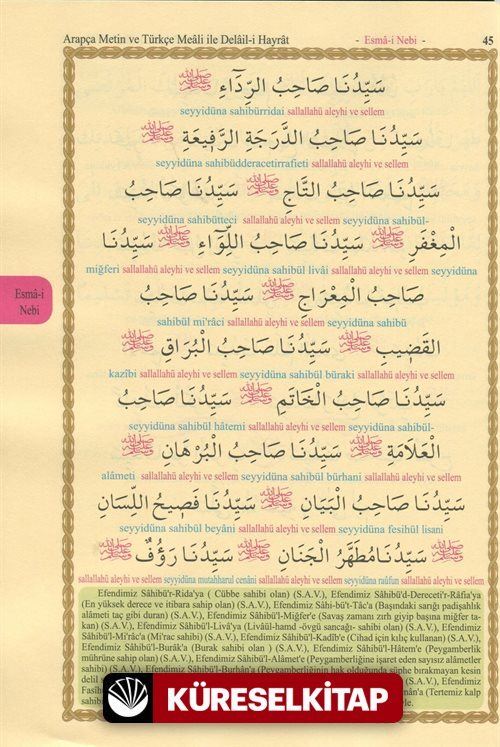 Arapça Metin ve Türkçe Meâli ile Delâil-i Hayrât - Esmâ-i Nebi - 45
سَيِّدُنَا صَاحِبُ الرِّدَٓاءِ ﷺ
seyyidüna sahibürridai sallallahü aleyhi ve sellem
سَيِّدُنَا صَاحِبُ الدَّرَجَةِ الرَّفِيعَةِ ﷺ
seyyidüna sahibüdderacetirrafieti sallallahü aleyhi ve sellem
سَيِّدُنَا صَاحِبُ التَّاجِ ﷺ سَيِّدُنَا صَاحِبُ
seyyidüna sahibütteci sallallahü aleyhi ve sellem seyyidüna sahibül-
الْمِغْفَرِ ﷺ سَيِّدُنَا صَاحِبُ اللِّوَٓاءِ ﷺ سَيِّدُنَا
miğferi sallallahü aleyhi ve sellem seyyidüna sahibül livâi sallallahü aleyhi ve sellem seyyidüna
صَاحِبُ الْمِعْرَاجِ ﷺ سَيِّدُنَا صَاحِبُ
sahibül mi'râci sallallahü aleyhi ve sellem seyyidüna sahibü
Esmâ-i
Nebi
القَضِيبِ ﷺ سَيِّدُنَا صَاحِبُ الْبُرَاقِ ﷺ
kazîbi sallallahü aleyhi ve sellem seyyidüna sahibül büraki sallallahü aleyhi ve sellem
سَيِّدُنَا صَاحِبُ الْخَاتَمِ ﷺ سَيِّدُنَا صَاحِبُ
seyyidüna sahibül hâtemi sallallahü aleyhi ve sellem seyyidüna sahibül-
الْعَلَامَةِ ﷺ سَيِّدُنَا صَاحِبُ الْبُرْهَانِ ﷺ
alâmeti sallallahü aleyhi ve sellem seyyidüna sahibül bürhani sallallahü aleyhi ve sellem
سَيِّدُنَا صَاحِبُ الْبَيَانِ ﷺ سَيِّدُنَا فَصِيحُ اللِّسَانِ
seyyidüna sahibül beyâni sallallahü aleyhi ve sellem seyyidüna fesihül lisani
ﷺ سَيِّدُنَا مُطَهَّرُ الْجَنَانِ ﷺ سَيِّدُنَا رَؤُفٌ ﷺ
sallallahü aleyhi ve sellem seyyidüna mutahharul cenâni sallallahü aleyhi ve sellem seyyidüna raûfun sallallahü aleyhi ve sellem
Efendimiz Sâhibü'r-Rida'ya ( Cübbe sahibi olan) (S.A.V.), Efendimiz Sâhibü'd-Dereceti'r-Râfia'ya
(En yüksek derece ve itibara sahip olan) (S.A.V.), Efendimiz Sâhi-bü't-Tâc'a (Başındaki sarığı padişahlık
alâmeti taç gibi duran) (S.A.V.), Efendimiz Sâhibü'l-Miğfer'e (Savaş zamanı zırh giyip başına miğfer ta-
kan) (S.A.V.), Efendimiz Sâhibü'l-Livâ'ya (Livâül-hamd -övgü sancağı- sahibi olan) (S.A.V.), Efendimiz
Sâhibü'l-Mi'râc'a (Mi'rac sahibi) (S.A.V.), Efendimiz Sâhibü'l-Kadîb'e (Cihad için kılıç kullanan) (S.A.V.),
Efendimiz Sâhibü'l-Burâk'a (Burak sahibi olan ) (S.A.V.), Efendimiz Sâhibü'l-Hâtem'e (Peygamberlik
mührüne sahip olan) (S.A.V.), Efendimiz Sâhibü'l-Alâmet'e (Peygamberliğine işaret eden sayısız alâmetler
sahibi) (S.A.V.), Efendimiz Sâhibü'l-Burhân'a (Peygamberliğinin hak olduğunda şüphe bırakmayan kesin
delil s
Fasîh
KÜRESELKİTAP
ân'a (Tertemiz kalp